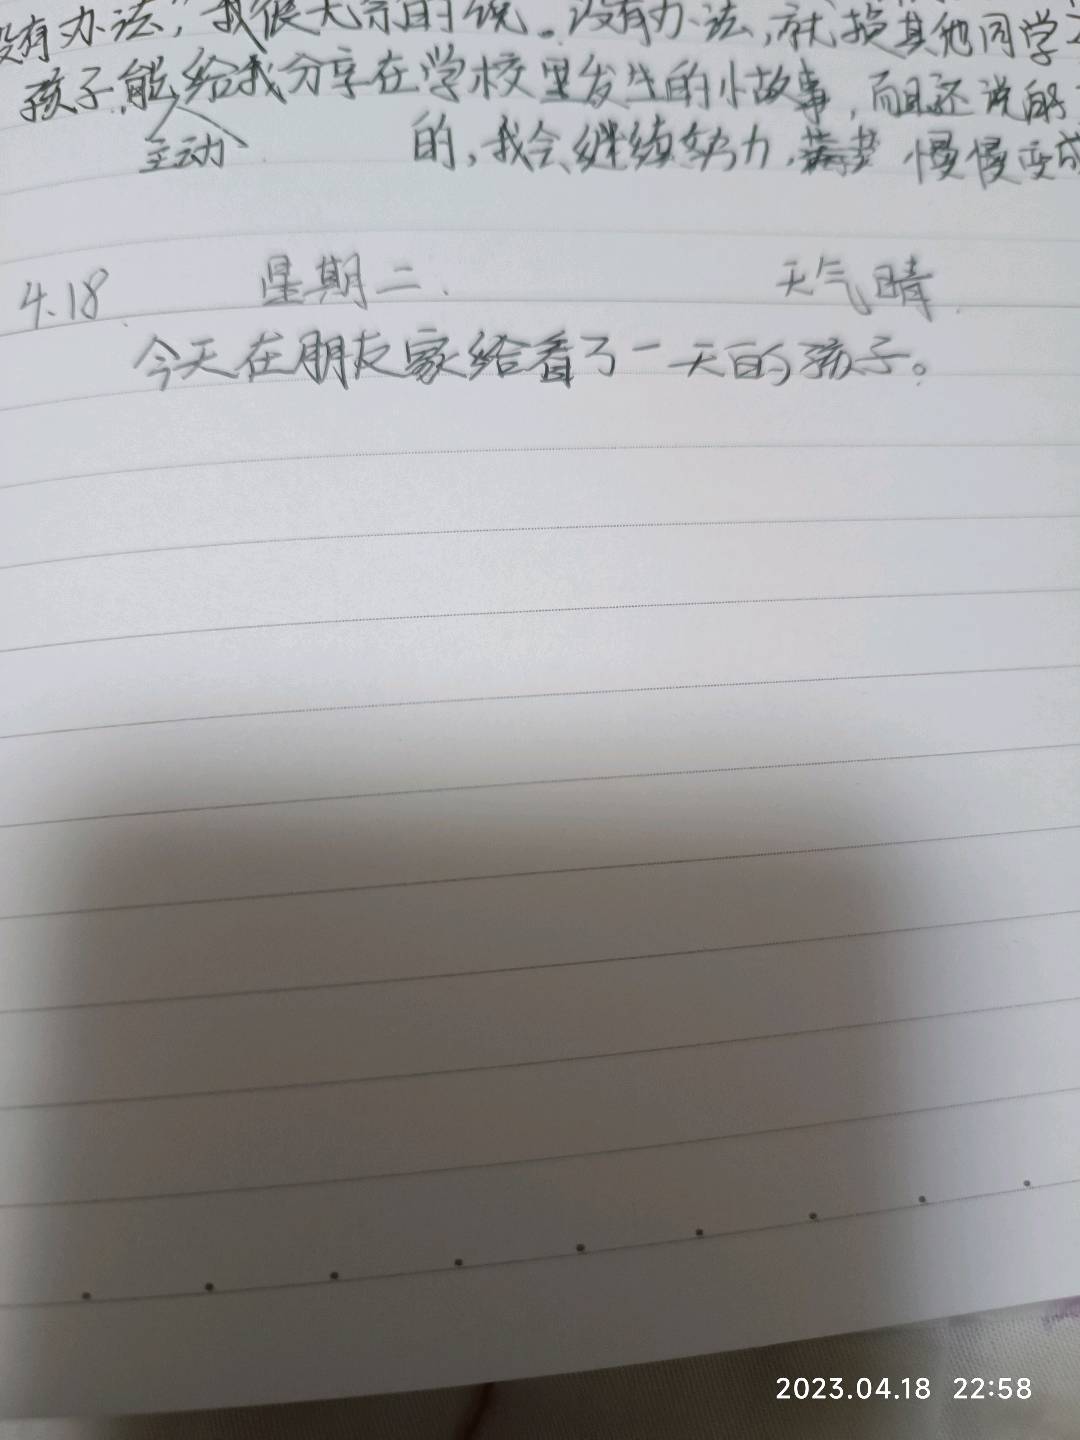 没有办法，我很无奈的说。没有办法，就挨其他同学
孩子能给我分享在学校里发生的小故事，而且还说的
主动 的，我会继续努力，慢慢变成
4.18 星期二. 天气晴.
今天在朋友家给看了一天的孩子。
2023.04.18 22:58